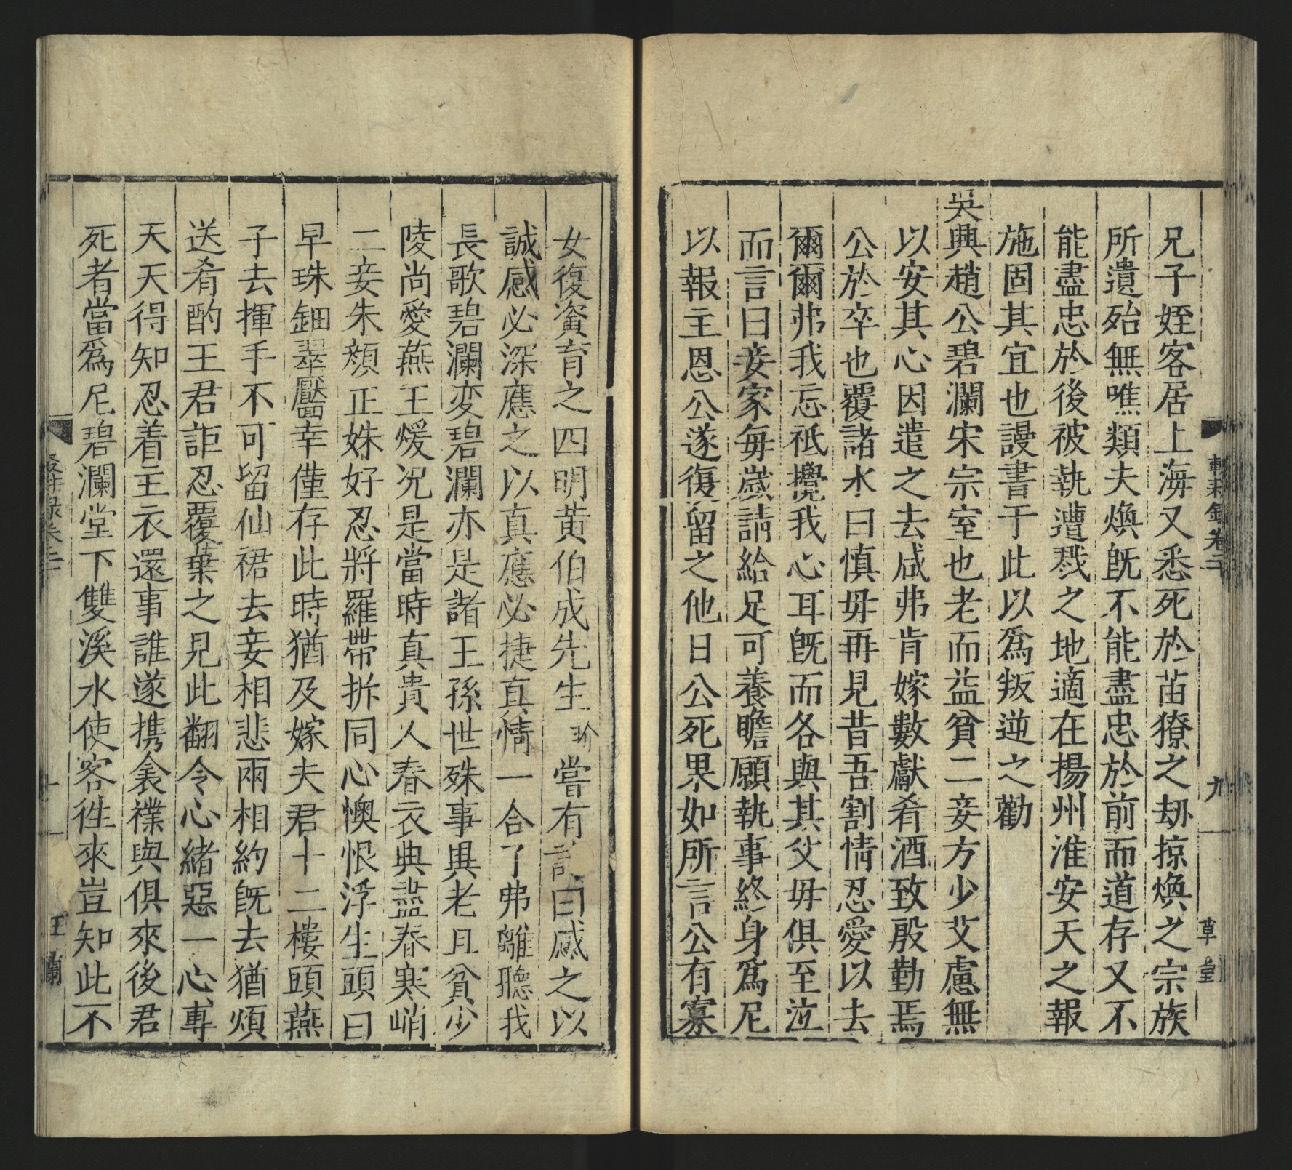 兄子姪客居上海又悉死於苗獠之刼掠煥之宗族
所遺殆無噍類夫煥旣不能盡忠於前而道存又不
能盡忠於後被執遭戮之地適在揚州淮安天之報
施固其宜也謾書于此以爲叛逆之勸
吳興趙公碧瀾宋宗室也老而益貧二妾方少艾慮無
以安其心因遣之去咸弗肯嫁數獻肴酒致殷勤焉
公於卒也覆諸水曰愼毋再見昔吾割情忍愛以去
爾爾弗我忘祇攪我心耳旣而各與其父毋俱至泣
而言曰妾家每歲請給足可養瞻願執事終身爲尼
以報主恩公遂復留之他日公死果如所言公有寡
女復資育之四明黃伯成先生玠嘗有詩曰感之以
誠感必深應之以真應必捷真情一合了弗離聽我
長歌碧瀾変碧瀾亦是諸王孫世殊事異老且貧少
陵尚愛燕王煖况是當時真貴人春衣典盡春寒峭
二妾朱顏正姝好忍將羅帶拆同心懊恨浮生頭曰
早珠鈿翠靨幸僅存此時猶及嫁夫君十二樓頭燕
子去揮手不可留仙裙去妾相悲兩相約旣去猶煩
送肴酌王君詎忍覆棄之見此翻令心緒惡一心専
天天得知忍着主衣還事誰遂携衾襆與俱來後君
死者當爲尼碧瀾堂下雙溪水使客徃來豈知此不